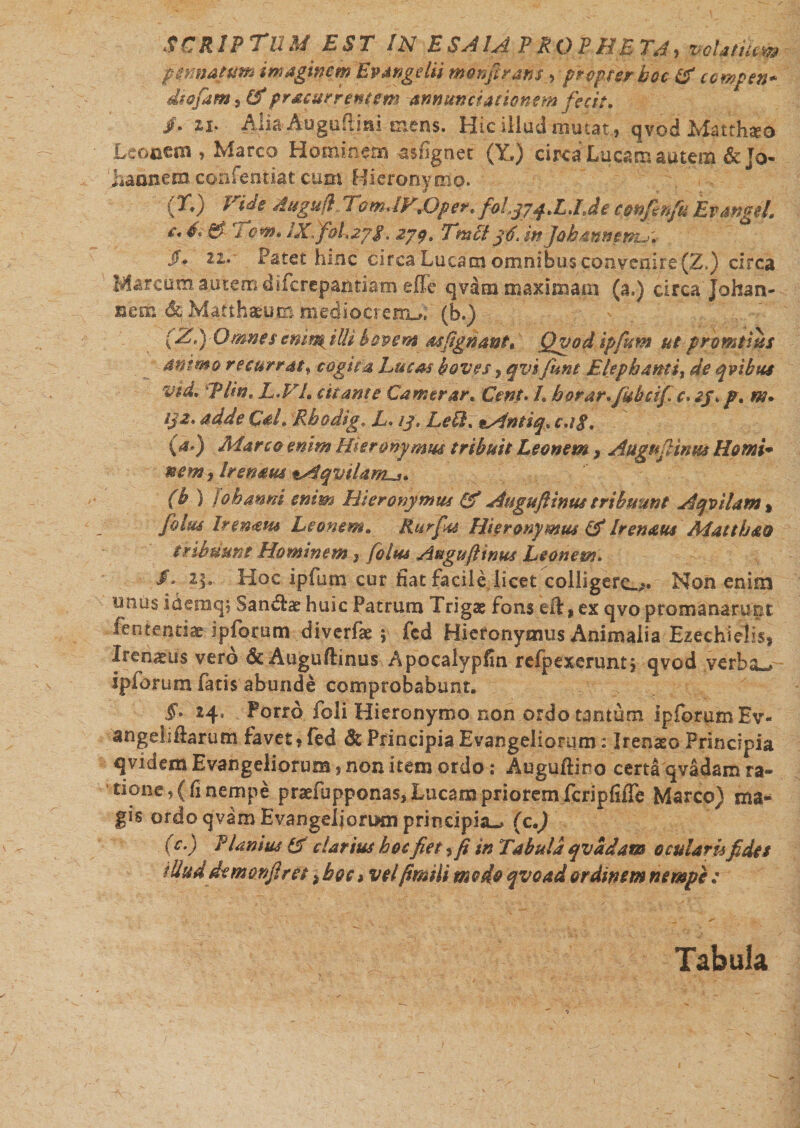 SCRIPTUM EST IN ESAIA PROPHETA, volatilem
pennatum imaginem Evangelii monstrans, propter hoc & compen-
diosam, & præcurrentem annunciationem fecit.
§. 21. Alia Augustini mens. Hic illud mutat, qvod Matthæo
Leonem, Marco Hominem asfignet (Y.) circa Lucam autem & Jo-
hannem consentiat cum Hieronymo.
(Y.) Vide August. Tom.IV.Oper. fol.374.L.I.de consensu Evangel.
c. 6. & Tom. IX.fol.278. 279. Tract 36. in Johannem.
§. 22. Patet hinc circa Lucam omnibus convenire (Z.) circa
Marcum autem discrepantiam esse qvàm maximam (a.) circa Johan-
nem & Matthæum mediocrem: (b.)
(Z.) Omnes enim illi bovem assignant. Qvod ipsum ut promtius
animo recurrat, cogita Lucas boves, qvi sunt Elephanti, de qvibus
vid. Plin. L.VI. citante Camerar. Cent. I. horar.subcis. c. 25. p. m.
132. adde Cæl. Rhodig. L. 13. Lect. Antiq. c.18.
(a.) Marco enim Hieronymus tribuit Leonem, Augustinus Homi-
nem, Irenæus Aqvilam.
(b) Johanni enim Hieronymus & Augustinus tribuunt Aqvilam,
solus Irenæus Leonem. Rursus Hieronymus & Irenæus Matthæo
tribuunt Hominem, solus Augustinus Leonem.
§. 23. Hoc ipsum cur fiat facilè licet colligere. Non enim
unus idemq; Sanctæ huic Patrum Trigæ fons est, ex qvo promanarunt
sententiæ ipsorum diversæ; sed Hieronymus Animalia Ezechielis,
Irenæus verò & Augustinus Apocalypsin respexerunt; qvod verba
ipsorum satis abundè comprobabunt.
§. 24. Porrò soli Hieronymo non ordo tantùm ipsorum Ev-
angelistarum favet, sed & Principia Evangeliorum: Irenæo Principia
qvidem Evangeliorum, non item ordo: Augustino certâ qvâdam ra-
tione, (si nempè præsupponas, Lucam priorem scripsisse Marco) ma-
gis ordo qvàm Evangeliorum principia (c.)
(c.) Planius & clarius hoc fiet, si in Tabulâ qvâdam ocularis fides
illud demonstret, hoc, vel simili modo qvoad ordinem nempè:
Tabula